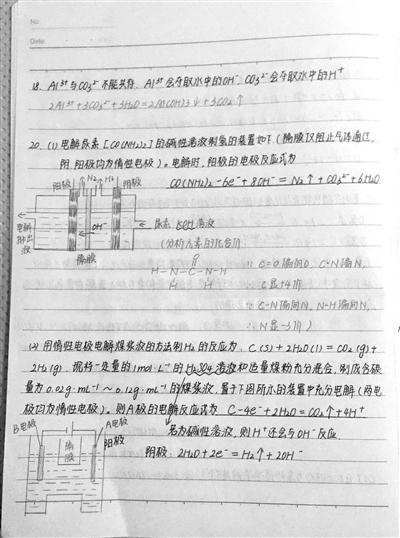 No.
Date
18. Al³⁺与CO₃²⁻不能共存. Al³⁺会夺取水中的OH⁻. CO₃²⁻会夺取水中的H⁺
2Al³⁺+3CO₃²⁻+3H₂O=2Al(OH)₃↓+3CO₂↑
20. (1) 电解尿素[CO(NH₂)₂]的碱性溶液制氢的装置如下(隔膜仅阻止气体通过,
阴.阳极均为惰性电极)。电解时,阳极的电极反应式为
阳极 N₂ H₂ 阴极 CO(NH₂)₂-6e⁻+8OH⁻=N₂↑+CO₃²⁻+6H₂O
电解 排出 液
OH⁻
尿素 KOH溶液
隔膜
(分析元素的化合价
O
H-N-C-N-H
H H
∵ C=O偏向O, C-N偏N,
∴ C显+4价
∵ C-N偏向N, N-H偏向N,
∴ N显-3价)
(2) 用惰性电极电解煤浆液的方法制H₂的反应为: C(s)+2H₂O(l)=CO₂(g)+
2H₂(g). 现将一定量的1mol·L⁻¹的H₂SO₄溶液和适量煤粉充分混合,制成含碳
量为0.02g·mL⁻¹~0.12g·mL⁻¹的煤浆液,置于下图所示的装置中充分电解(两电
极均为惰性电极)。则A极的电解反应式为 C-4e⁻+2H₂O=CO₂↑+4H⁺
B电极 A电极
阴极 隔膜 阳极
若为碱性溶液,则H⁺还会与OH⁻反应.
阴极: 2H₂O+2e⁻=H₂↑+2OH⁻